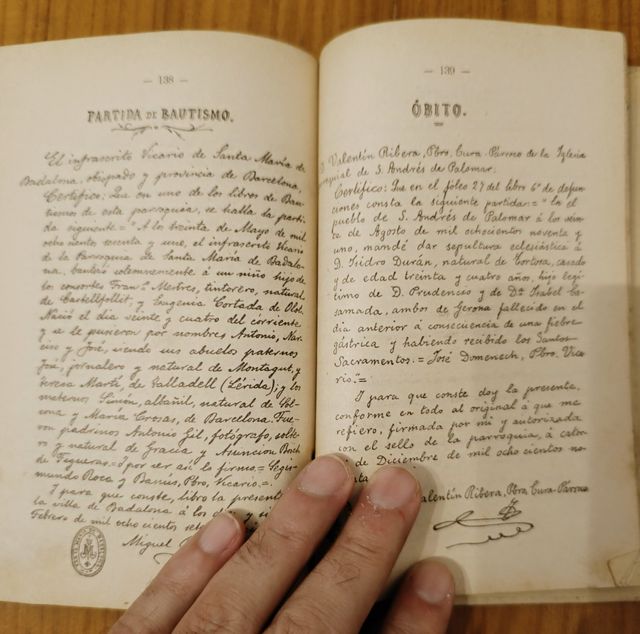 — 138 —
PARTIDA DE BAUTISMO.
El infrascrito Vicario de Santa María de
Badalona, obispado y provincia de Barcelona,
Certifico: Que en uno de los libros de Bau-
tismos de esta parroquia, se halla la parti-
da siguiente = "A lo treinta de Mayo de mil
ocho cientos sesenta y uno, el infrascrito Vicario
de la Parroquia de Santa María de Badalo-
na, bauticé solemnemente á un niño hijo de
los consortes Fran.º Mestres, tintorero, natural
de Castellfollit, y Eugenia Cortada de Olot.
Nació el día veinte y cuatro del corriente
y se le pusieron por nombres Antonio, Nar-
ciso y José, siendo sus abuelos paternos
José, jornalero y natural de Montagut, y
Teresa Martí, de Talladell (Lérida); y los
maternos Simón, albañil, natural de
y María Cresas, de Barcelona. Fue-
ron padrinos Antonio Gil, fotógrafo, solte-
ro y natural de Gracia y Asunción Bosch
de Figueras. = Y por ser así lo firmo = Segis-
mundo Roca y Banús, Pbro, Vicario. =.
Y para que conste, libro la presente
la villa de Badalona á los
Febrero de mil ocho cientos
Miguel
— 139 —
ÓBITO.
Valentín Ribera, Pbro, Cura-Párroco de la Iglesia
parroquial de S. Andrés de Palomar.
Certifico: Que en el folio 27 del libro 6º de defun-
ciones consta la siguiente partida: = "En el
pueblo de S. Andrés de Palomar á los
de Agosto de mil ochocientos noventa y
uno, mandé dar sepultura eclesiástica á
D. Isidro Durán, natural de Tortosa, casado
y de edad treinta y cuatro años, hijo legí-
timo de D. Prudencio y de Dª Isabel Ca-
samada, ambos de Gerona fallecido en el
día anterior á consecuencia de una fiebre
gástrica y habiendo recibido los Santos
Sacramentos. = José Domenech, Pbro. Vica-
rio." =
Y para que conste doy la presente,
conforme en todo al original á que me
refiero, firmada por mi y autorizada
con el sello de la parroquia, á cator-
de Diciembre de mil ocho cientos no-
Valentín Ribera, Pbro, Cura-Párroco